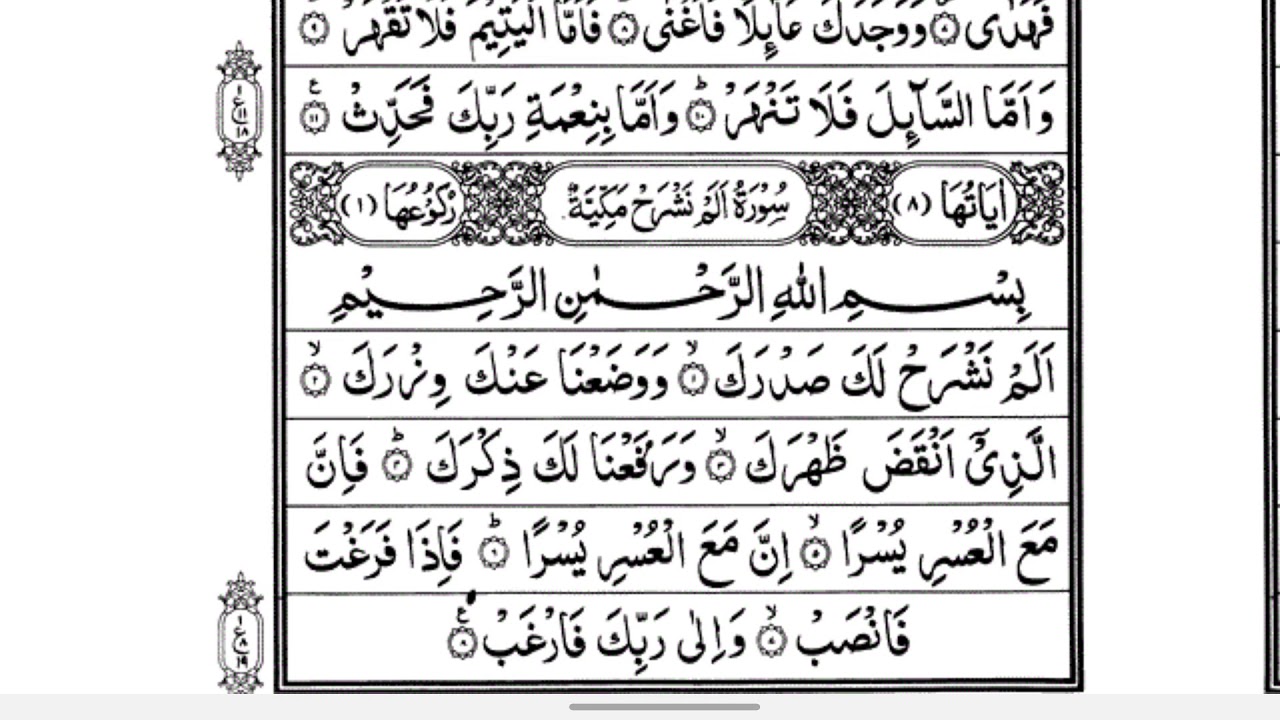 فَهَدٰى ۝٧ وَوَجَدَكَ عَآئِلًا فَاَغْنٰى ۝٨ فَاَمَّا الْيَتِيْمَ فَلَا تَقْهَرْ ۝٩
وَاَمَّا السَّآئِلَ فَلَا تَنْهَرْ ۝١٠ؕ وَاَمَّا بِنِعْمَةِ رَبِّكَ فَحَدِّثْ ۝١١
١ ع ١١ ١٨
اٰيَاتُهَا (٨) سُوْرَةُ اَلَمْ نَشْرَحْ مَكِّيَّةٌ رُكُوْعُهَا (١)
بِسْمِ اللّٰهِ الرَّحْمٰنِ الرَّحِيْمِ
اَلَمْ نَشْرَحْ لَكَ صَدْرَكَ ۝١ۙ وَوَضَعْنَا عَنْكَ وِزْرَكَ ۝٢ۙ
الَّذِيْٓ اَنْقَضَ ظَهْرَكَ ۝٣ۙ وَرَفَعْنَا لَكَ ذِكْرَكَ ۝٤ؕ فَاِنَّ
مَعَ الْعُسْرِ يُسْرًا ۝٥ۙ اِنَّ مَعَ الْعُسْرِ يُسْرًا ۝٦ؕ فَاِذَا فَرَغْتَ
فَانْصَبْ ۝٧ۙ وَاِلٰى رَبِّكَ فَارْغَبْ ۝٨
١ ع ٨ ١٩